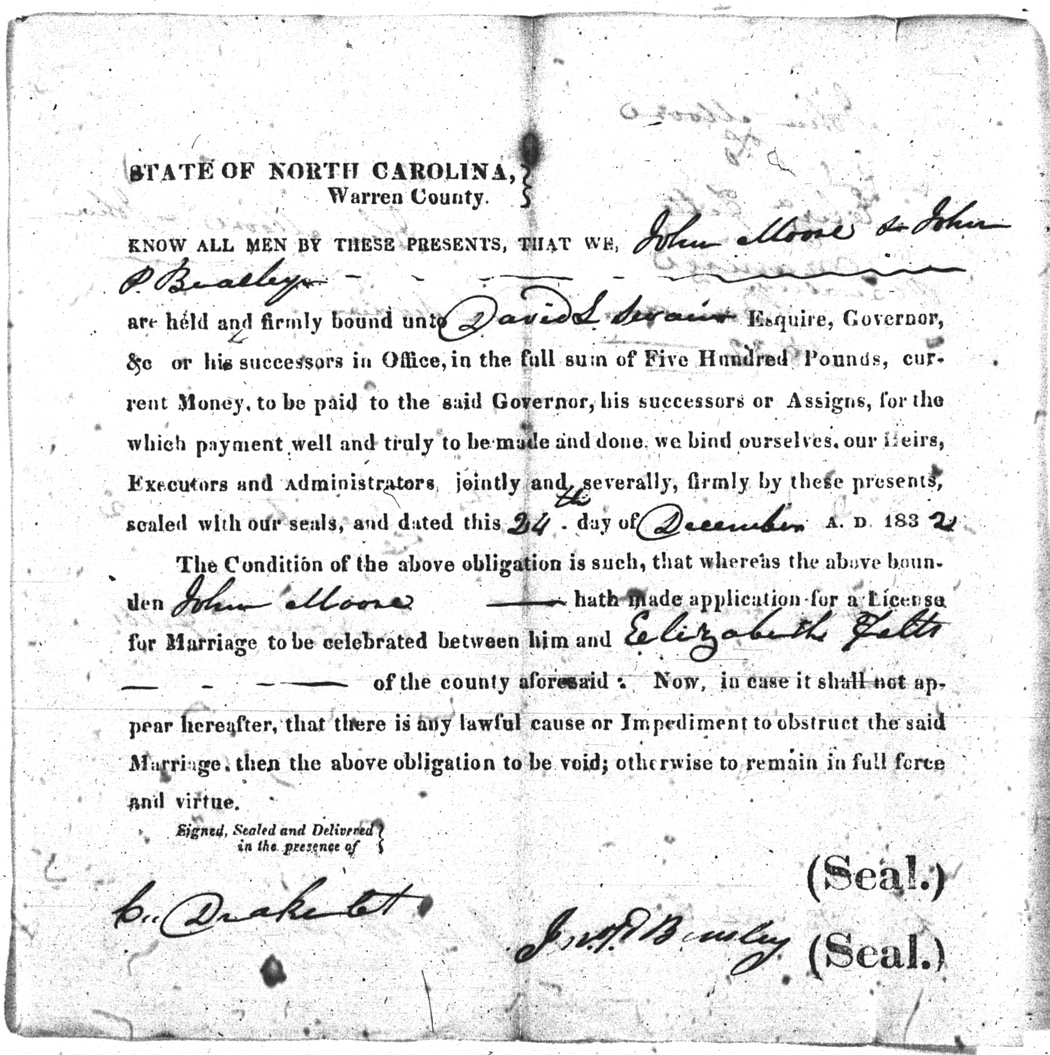 STATE OF NORTH CAROLINA,
Warren County.
KNOW ALL MEN BY THESE PRESENTS, THAT WE, John Moore & John
P.
are held and firmly bound unto David L Swain Esquire, Governor,
&c or his successors in Office, in the full sum of Five Hundred Pounds, cur-
rent Money, to be paid to the said Governor, his successors or Assigns, for the
which payment well and truly to be made and done, we bind ourselves, our Heirs,
Executors and Administrators jointly and severally, firmly by these presents,
sealed with our seals, and dated this 24th day of December A. D. 1832
The Condition of the above obligation is such, that whereas the above boun-
den John Moore hath made application for a License
for Marriage to be celebrated between him and Eelizabeth Felts
of the county aforesaid: Now, in case it shall not ap-
pear hereafter, that there is any lawful cause or Impediment to obstruct the said
Marriage, then the above obligation to be void; otherwise to remain in full force
and virtue.
Signed, Sealed and Delivered
in the presence of
(Seal.)
Drake
(Seal.)